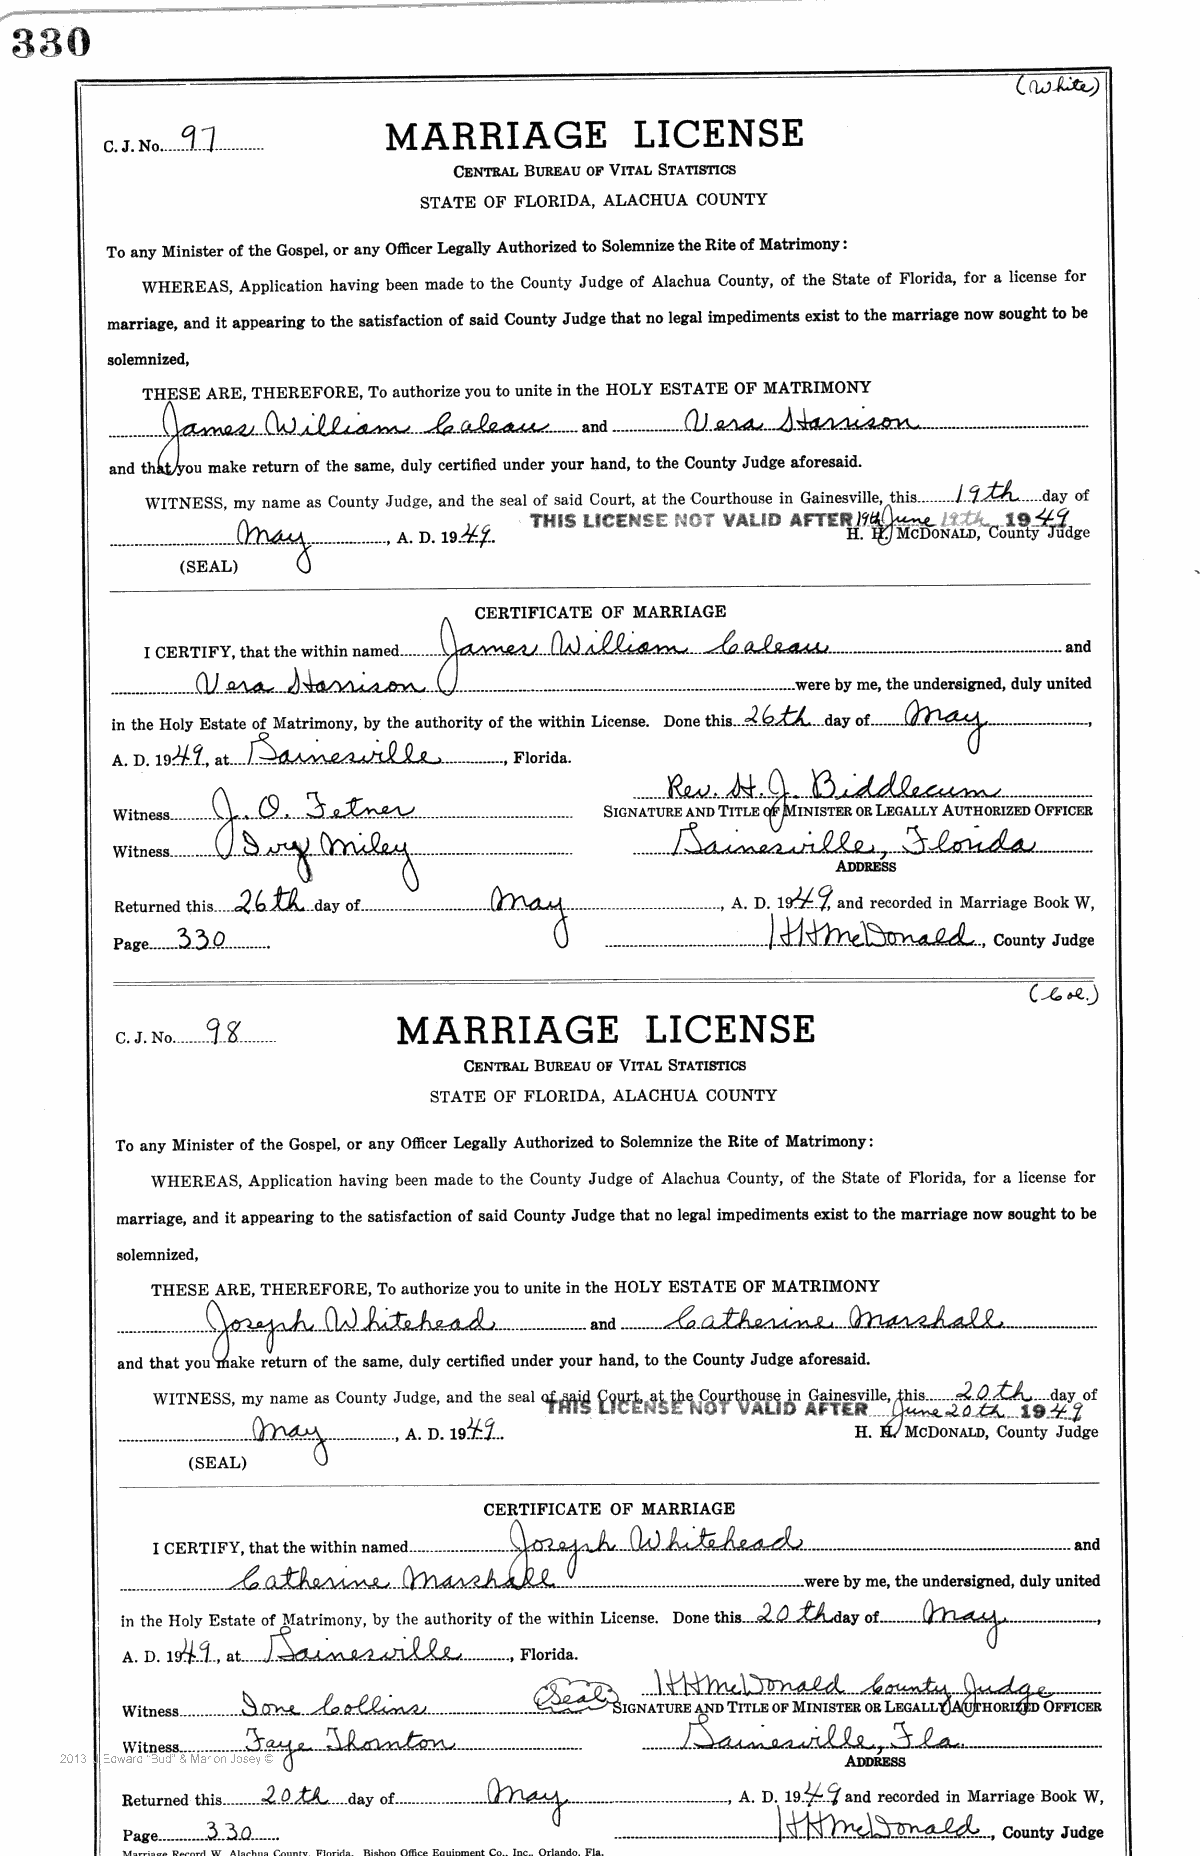 330
(White)
C. J. No. 97
MARRIAGE LICENSE
CENTRAL BUREAU OF VITAL STATISTICS
STATE OF FLORIDA, ALACHUA COUNTY
To any Minister of the Gospel, or any Officer Legally Authorized to Solemnize the Rite of Matrimony:
WHEREAS, Application having been made to the County Judge of Alachua County, of the State of Florida, for a license for
marriage, and it appearing to the satisfaction of said County Judge that no legal impediments exist to the marriage now sought to be
solemnized,
THESE ARE, THEREFORE, To authorize you to unite in the HOLY ESTATE OF MATRIMONY
James William Caleau and Vera Harrison
and that you make return of the same, duly certified under your hand, to the County Judge aforesaid.
WITNESS, my name as County Judge, and the seal of said Court, at the Courthouse in Gainesville, this 19th day of
THIS LICENSE NOT VALID AFTER 19th June 19th 1949
May, A. D. 1949. H. H. McDONALD, County Judge
(SEAL)
CERTIFICATE OF MARRIAGE
I CERTIFY, that the within named James William Caleau and
Vera Harrison were by me, the undersigned, duly united
in the Holy Estate of Matrimony, by the authority of the within License. Done this 26th day of May,
A. D. 1949, at Gainesville, Florida.
Rev. H. J. Biddlecum
Witness J. O. Fetner SIGNATURE AND TITLE OF MINISTER OR LEGALLY AUTHORIZED OFFICER
Witness Ivy Miley Gainesville, Florida
ADDRESS
Returned this 26th day of May, A. D. 1949, and recorded in Marriage Book W,
Page 330 H H McDonald, County Judge
(Col.)
C. J. No. 98
MARRIAGE LICENSE
CENTRAL BUREAU OF VITAL STATISTICS
STATE OF FLORIDA, ALACHUA COUNTY
To any Minister of the Gospel, or any Officer Legally Authorized to Solemnize the Rite of Matrimony:
WHEREAS, Application having been made to the County Judge of Alachua County, of the State of Florida, for a license for
marriage, and it appearing to the satisfaction of said County Judge that no legal impediments exist to the marriage now sought to be
solemnized,
THESE ARE, THEREFORE, To authorize you to unite in the HOLY ESTATE OF MATRIMONY
Joseph Whitehead and Catherine Marshall
and that you make return of the same, duly certified under your hand, to the County Judge aforesaid.
WITNESS, my name as County Judge, and the seal of said Court, at the Courthouse in Gainesville, this 20th day of
THIS LICENSE NOT VALID AFTER June 20th 1949
May, A. D. 1949. H. H. McDONALD, County Judge
(SEAL)
CERTIFICATE OF MARRIAGE
I CERTIFY, that the within named Joseph Whitehead and
Catherine Marshall were by me, the undersigned, duly united
in the Holy Estate of Matrimony, by the authority of the within License. Done this 20th day of May,
A. D. 1949, at Gainesville, Florida.
(Seal) H H McDonald County Judge
Witness Ione Collins SIGNATURE AND TITLE OF MINISTER OR LEGALLY AUTHORIZED OFFICER
Witness Faye Thornton Gainesville, Fla.
2013 J Edward "Bud" & Marion Josey ©
ADDRESS
Returned this 20th day of May, A. D. 1949 and recorded in Marriage Book W,
Page 330 H H McDonald, County Judge
Marriage Record W, Alachua County, Florida. Bishop Office Equipment Co., Inc., Orlando, Fla.